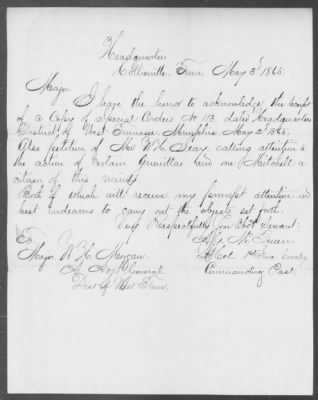 Headquarters
Collierville, Tenn, May 3d 1865.
Major
I have the honor to acknowledge the receipt
of a Copy of Special Orders No 113. dated Headquarters
District of West Tennessee, Memphis May 2d 1865.
Also petition of Mrs Wm Seay calling attention to
the action of certain Guerillas and one Mitchell a
of this
Both of which will receive my prompt attention and
best endeavors to carry out the objects set forth.
Very Respectfully Your Obdt Servant.
To
Major W H. Morgan
A. A. General
Dist of West Tenn.
Lt Col. Cavalry
Commanding Post.